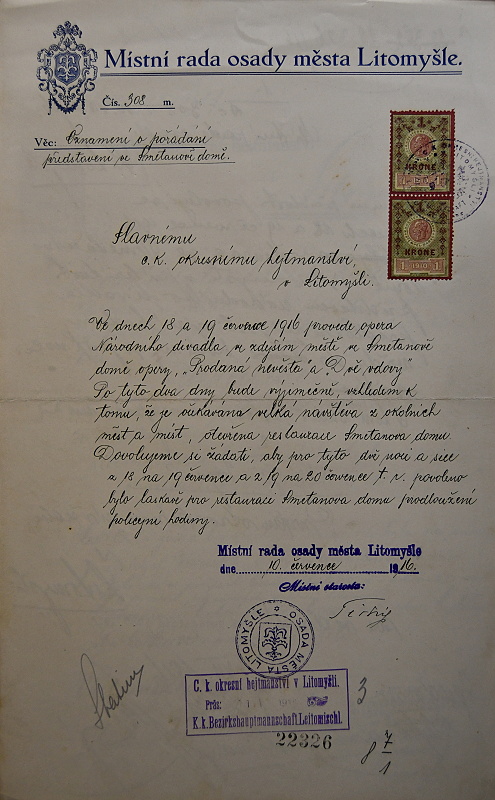 Místní rada osady města Litomyšle.
Čís. 308 m.
Věc: Oznamení o pořádání
představení ve Smetanově domě.
1
KRONE
1 1
1
KRONE
1 1910 1
Slavnému
c. k. okresnímu hejtmanství,
v Litomyšli.
Ve dnech 18 a 19 července 1916 provede opera
Národního divadla ve zdejším městě ve Smetanově
domě opery, "Prodaná nevěsta" a "Dvě vdovy"
Po tyto dva dny bude výjimečně, vzhledem k
tomu, že je očkávana velká navštěva z okolních
měst a míst, otevřena restaurace Smetanova domu.
Dovolujeme si žádati, aby pro tyto dvě noci a sice
z 18 na 19 července a z 19 na 20 července t. r. povoleno
bylo laskavě pro restauraci Smetanova domu prodloužení
policejní hodiny.
Místní rada osady města Litomyšle
dne 10. července 1916.
Místní starosta:
OSADA MĚSTA LITOMYŠLE
C. k. okresní hejtmanství v Litomyšli.
Präs:
K. k. Bezirkshauptmannschaft Leitomischl.
22326
3
8 7/1